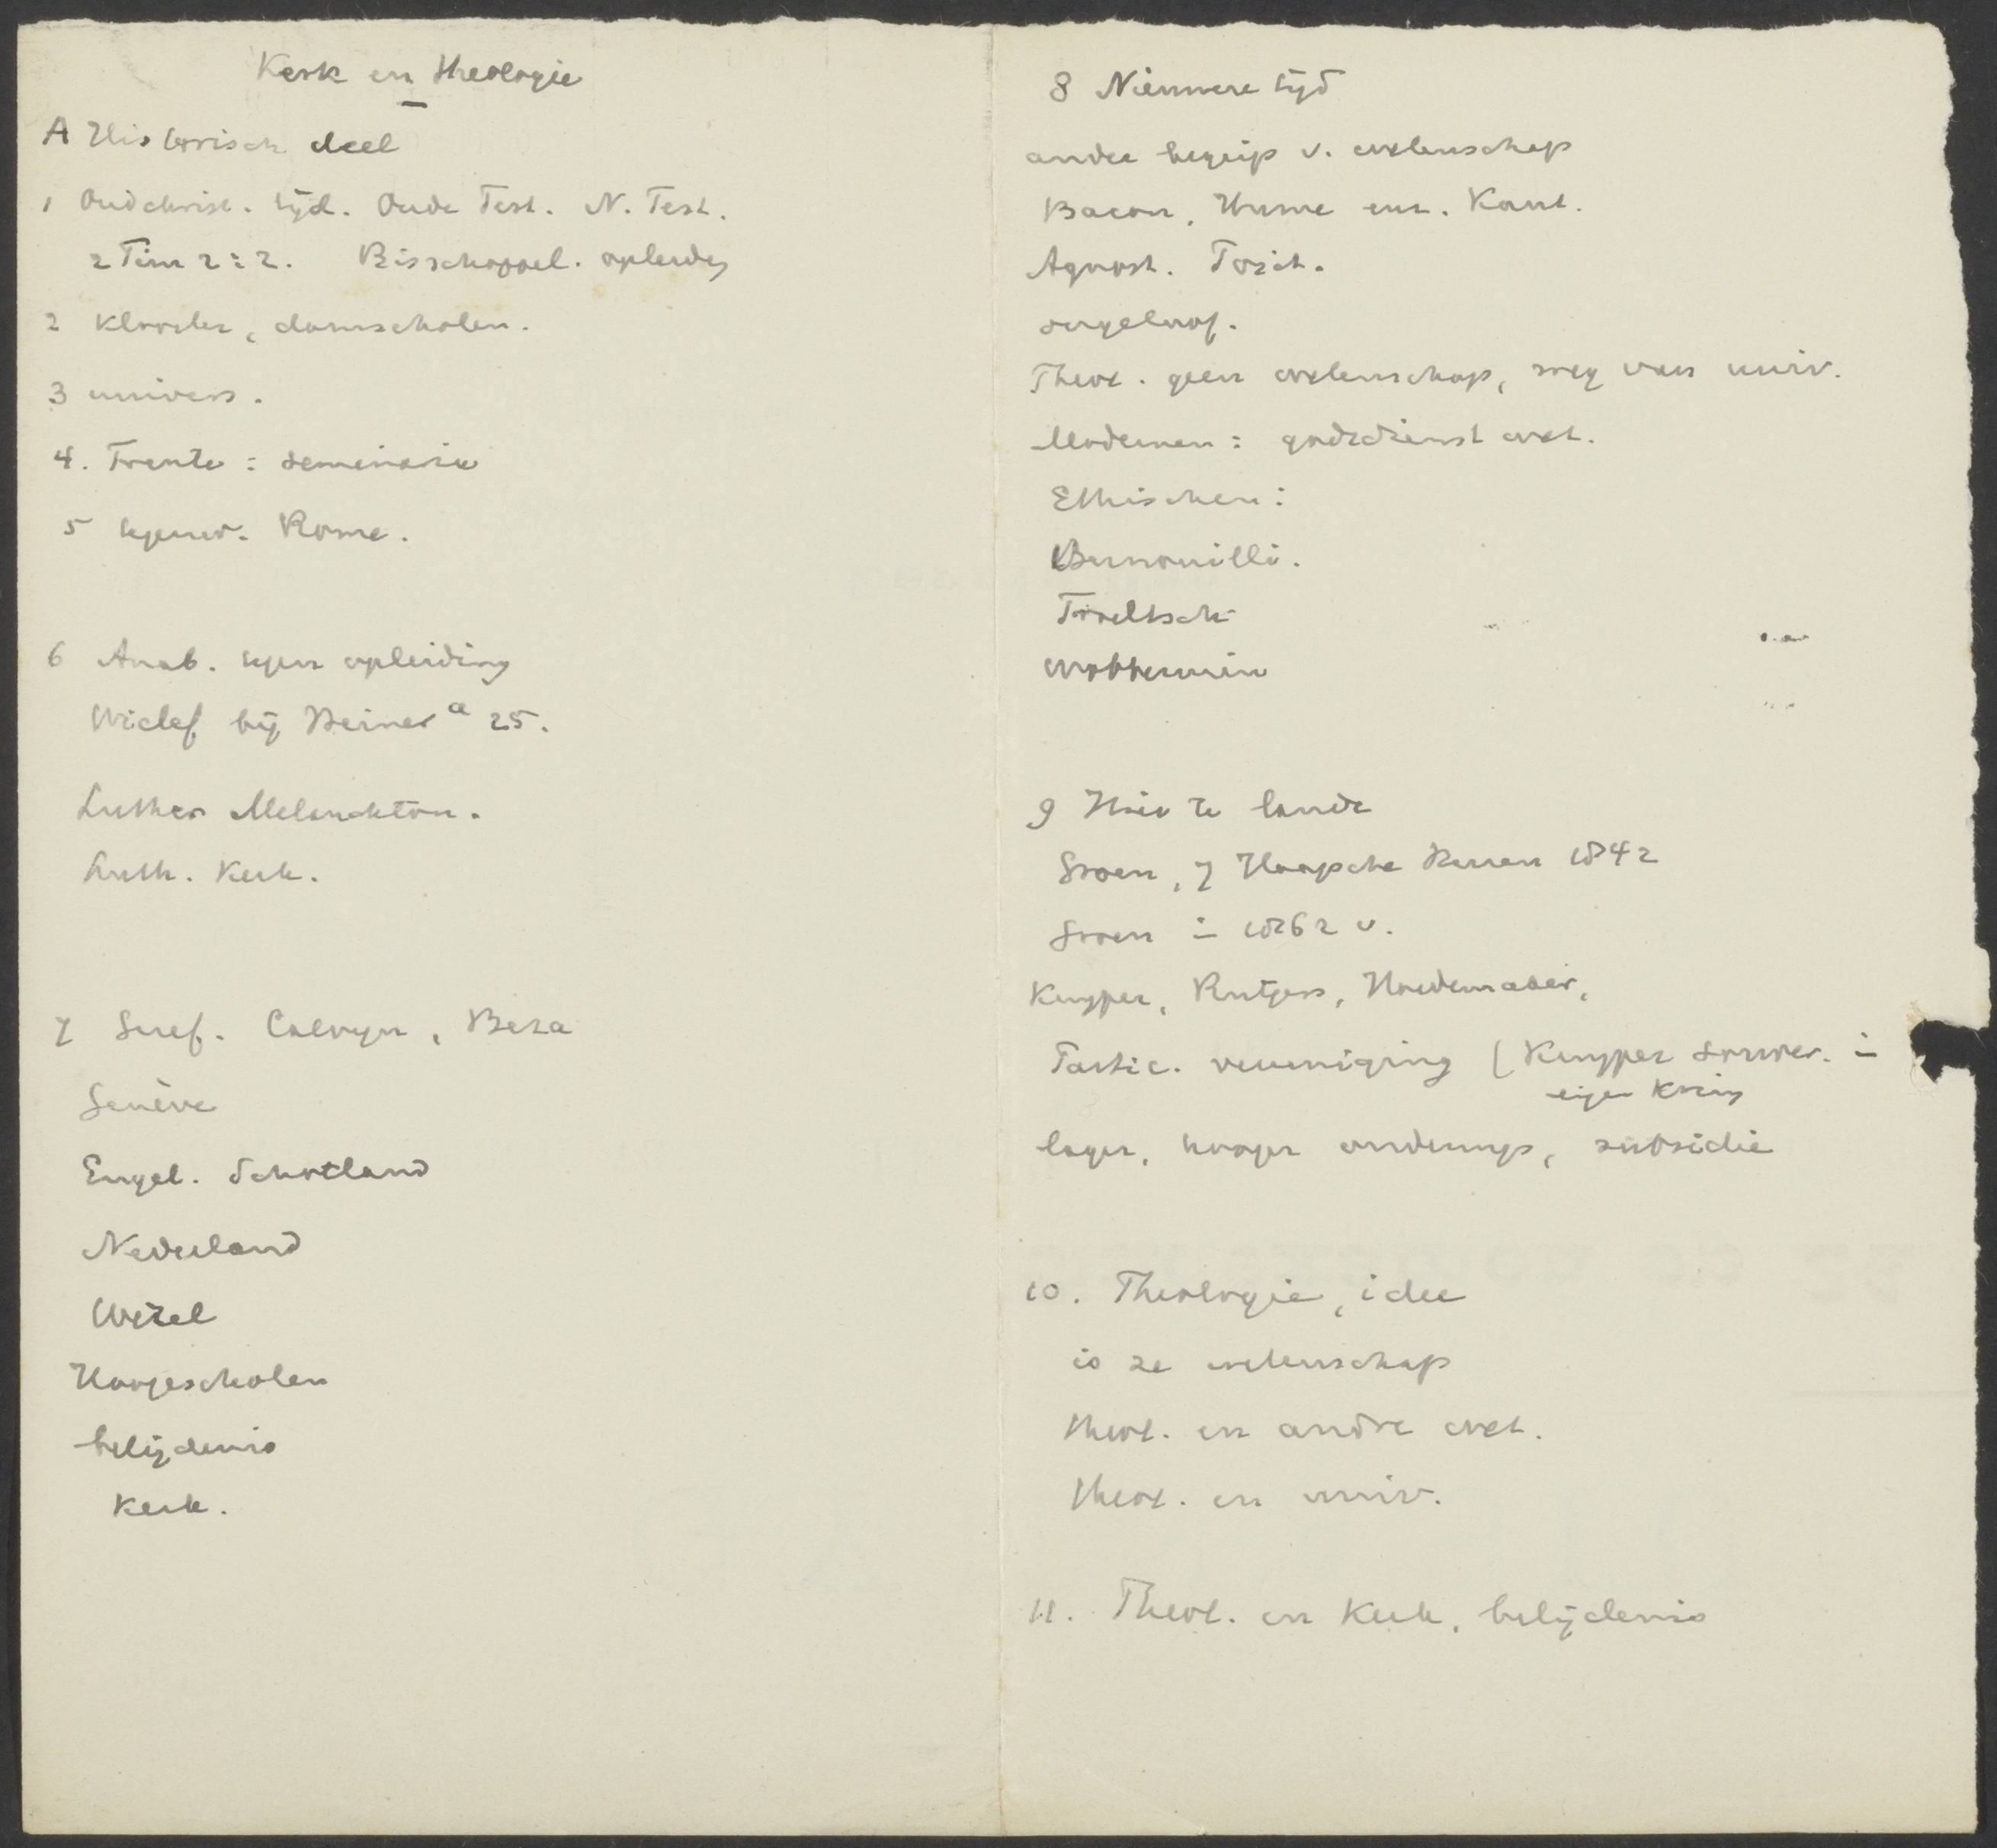 Kerk en theologie
A Historisch deel
1 Oudchrist. tijd. Oude Test. N. Test.
2 Tim 2:2. Bisschoppel. opleidg
2 Klooster, domscholen.
3 univers.
4. Trente : seminarie
5 tegenw. Rome.
6 Anab. tegen opleiding
Wiclef bij a 25.
Luther Melanchton.
Luth. Kerk.
7 Geref. Calvyn, Beza
Genève
Engel. Schotland
Nederland
Wezel
Hoogescholen
belijdenis
Kerk.
8 Nieuwere tijd
ander begrip v. wetenschap
Bacon, Hume enz. Kant.
Agnost. Posit.
ongeloof.
Theol. geen wetenschap, weg van univ.
Modernen : godsdienst wet.
Ethischen :
Bernouilli.
Troeltsch
Wobbermin
9 Hier te lande
Groen, 7 Haagsche Heeren 1842
Groen in 1862 v.
Kuyper, Rutgers, Hoedemaker,
Partic. vereeniging (Kuyper Souver. in
eigen Kring
lager, hooger onderwijs, subsidie
10. Theologie, idee
is ze wetenschap
theol. en andre wet.
theol. en univ.
11. Theol. en Kerk, belijdenis